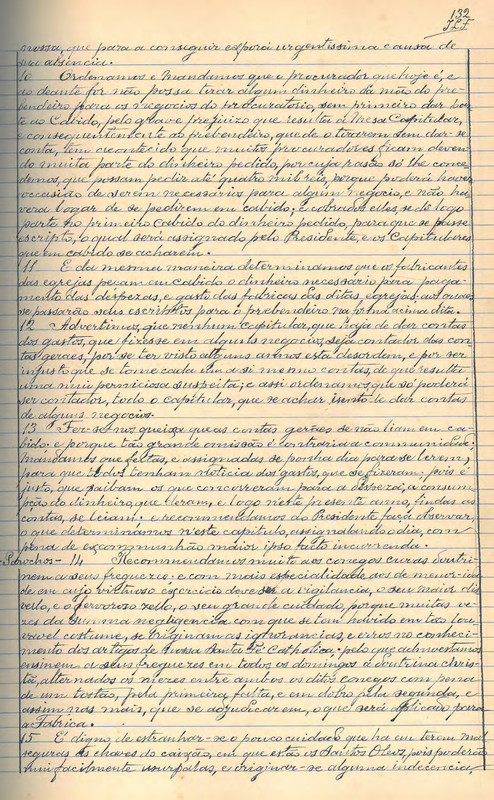 132
nossa, que para a conseguir esporá urgentissima causa de
sua absencia.
10 Ordenamos e Mandamos que o procurador que hoje é, e
ao deante for não possa tirar algum dinheiro da mão do pre-
bendeiro para os negocios do procuratorio, sem primeiro dar par-
te ao Cabido, pelo grave prejuizo que resulta á Mesa Capitular,
e consequentemente ao prebendeiro, que de o tirarem sem dar-se
conta, têm acontecido que muitos procuradores ficam deven-
do muita parte do dinheiro pedido, por cuja rasão só lhe conce-
demos, que possam pedir até quatro mil reis, porque poderá haver
occasião de serem necessarios para algum negocio, e não ha-
verá logar de se pedirem em cabido; e cobrados elles, se dê logo
parte no primeiro Cabido do dinheiro pedido, para que se passe
escripto, o qual será assignado pelo Presidente, e os Capitulares
que em cabido se acharem.
11 E da mesma maneira determinamos que os fabricantes
das egrejas peçam em cabido o dinheiro necessario para paga-
mento das despezas, e gasto das fabricas das ditas egrejas; aos quaes
se passarão seus escriptos para o prebendeiro na forma acima dita.
12 Advertimos, que nenhum capitular, que haja de dar contas
dos gastos, que fizesse em alguns negocios, seja contador das con-
tas geraes, por se ter visto alguns annos esta desordem, e por ser
injusto que se tome cada um a si mesmo contas, de que resulta
uma mui perniciosa suspeita; e assi ordenamos que só poderá
ser contador, todo o capitular, que se achar isento de dar contas
de alguns negocios.
13 Fez-se-nos queixa que as contas geraes se não liam em ca-
bido: e porque tão grande omissão é contraria a communidade;
mandamos que feitas, e assignadas se ponha dia para se lerem,
para que todos tenham noticia dos gastos, que se fizeram; pois é
justo, que saibam os que concorreram para a despeza, a consum-
pção do dinheiro, que deram, e logo neste presente anno, findas as
contas, se leiam: e recommendamos ao Presidente faça observar,
o que determinamos n'este capitulo, assignalando o dia, com
pena de excommunhão maior ipso facto incurrenda.
Parochos- 14 Recommendamos muito aos conegos curas doutri-
nem a seus freguezes: e com mais especialidade aos de menor ida-
de em cujo virtuoso exercicio deve ser a vigilancia, o seu maior des-
vello, e o fervoroso zello, o seu grande cuidado, porque muitas ve-
zes da summa negligencia com que se tem havido em tão lou-
vavel costume, se originam as ignorancias, e erros no conheci-
mento dos artigos de Nossa Santa Fé Catholica; pelo que admoestamos
ensinem os seus freguezes em todos os domingos a doutrina chris-
tã, alternados os mezes entre ambos os ditos conegos com pena
de um tostão, pela primeira falta, e em dobro pela segunda, e
assim nas mais, que se adjudicarem, o que será applicado para
a Fabrica.
15 E digno de estranhar-se o pouco cuidado que ha em terem mal
seguras as chaves do caixão, em que estão os Santos Oleos, pois poderão
mui facilmente usurpal-as, e originar-se alguma indecencia,